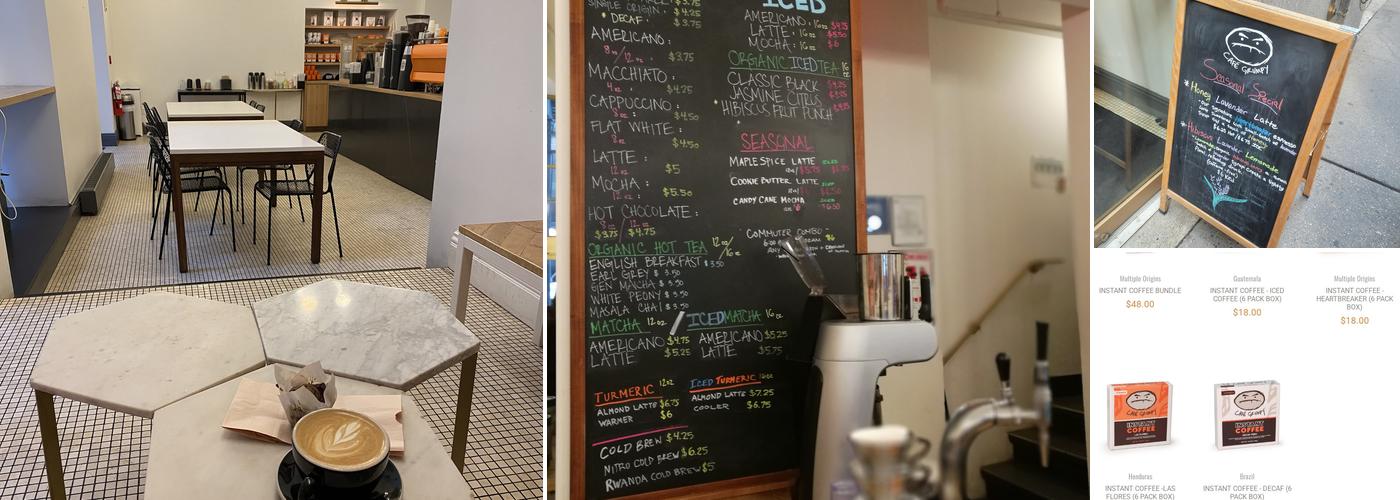 SINGLE ORIGIN: $4.25
* DECAF: $3.75
AMERICANO:
8oz/12oz $3.75
MACCHIATO:
4oz $4.25
CAPPUCCINO:
8oz $4.50
FLAT WHITE:
8oz $4.50
LATTE:
12oz $5
MOCHA:
12oz $5.50
HOT CHOCOLATE:
8oz 12oz
$3.75 / $4.75
ORGANIC HOT TEA 12/16oz
ENGLISH BREAKFAST $3.50
EARL GREY $3.50
GEN MAICHA $3.50
WHITE PEONY $3.50
MASALA CHAI $3.50
MATCHA 12oz
AMERICANO $4.75
LATTE $5.25
TURMERIC 12oz
ALMOND LATTE $6.75
WARMER $6
COLD BREW $4.25
NITRO COLD BREW $6.25
RWANDA COLD BREW $5
ICED
AMERICANO: 16oz
LATTE: 16oz $5.50
MOCHA: 16oz $6
ORGANIC ICED TEA 16oz
CLASSIC BLACK
JASMINE CITRUS
HIBISCUS FRUIT PUNCH
SEASONAL
MAPLE SPICE LATTE ICED
COOKIE BUTTER LATTE ICED
CANDY CANE MOCHA ICED
COMMUTER COMBO $6
ICED MATCHA 16oz
AMERICANO $5.25
LATTE $5.75
ICED TURMERIC 16oz
ALMOND LATTE $7.25
COOLER $6.75
CAFE GRUMPY
Seasonal Special
* Honey Lavender Latte
Heartbreaker espresso
* Hibiscus Lavender Lemonade
Multiple Origins
INSTANT COFFEE BUNDLE
$48.00
Guatemala
INSTANT COFFEE - ICED
COFFEE (6 PACK BOX)
$18.00
Multiple Origins
INSTANT COFFEE -
HEARTBREAKER (6 PACK
BOX)
$18.00
CAFE GRUMPY
INSTANT
COFFEE
CAFE GRUMPY
INSTANT
COFFEE
Honduras
INSTANT COFFEE -LAS
FLORES (6 PACK BOX)
Brazil
INSTANT COFFEE - DECAF (6
PACK BOX)